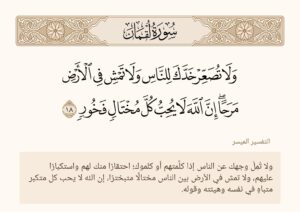 سُورَةُ لُقْمَان
وَلَا تُصَعِّرْ خَدَّكَ لِلنَّاسِ وَلَا تَمْشِ فِي ٱلْأَرْضِ
مَرَحًا ۖ إِنَّ ٱللَّهَ لَا يُحِبُّ كُلَّ مُخْتَالٍ فَخُورٍ ١٨
التفسير الميسر
ولا تُمِلْ وجهك عن الناس إذا كلَّمتهم أو كلموك؛ احتقارًا منك لهم واستكبارًا
عليهم، ولا تمش في الأرض بين الناس مختالا متبخترًا، إن الله لا يحب كل متكبر
متباهٍ في نفسه وهيئته وقوله.